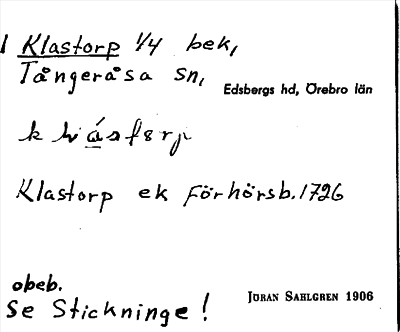 1 Klastorp 1/4 bek,
Tångeråsa sn,
Edsbergs hd, Örebro län
Klastorp ek Förhörsb. 1726
obeb.
Se Stickninge!
JÖRAN SAHLGREN 1906